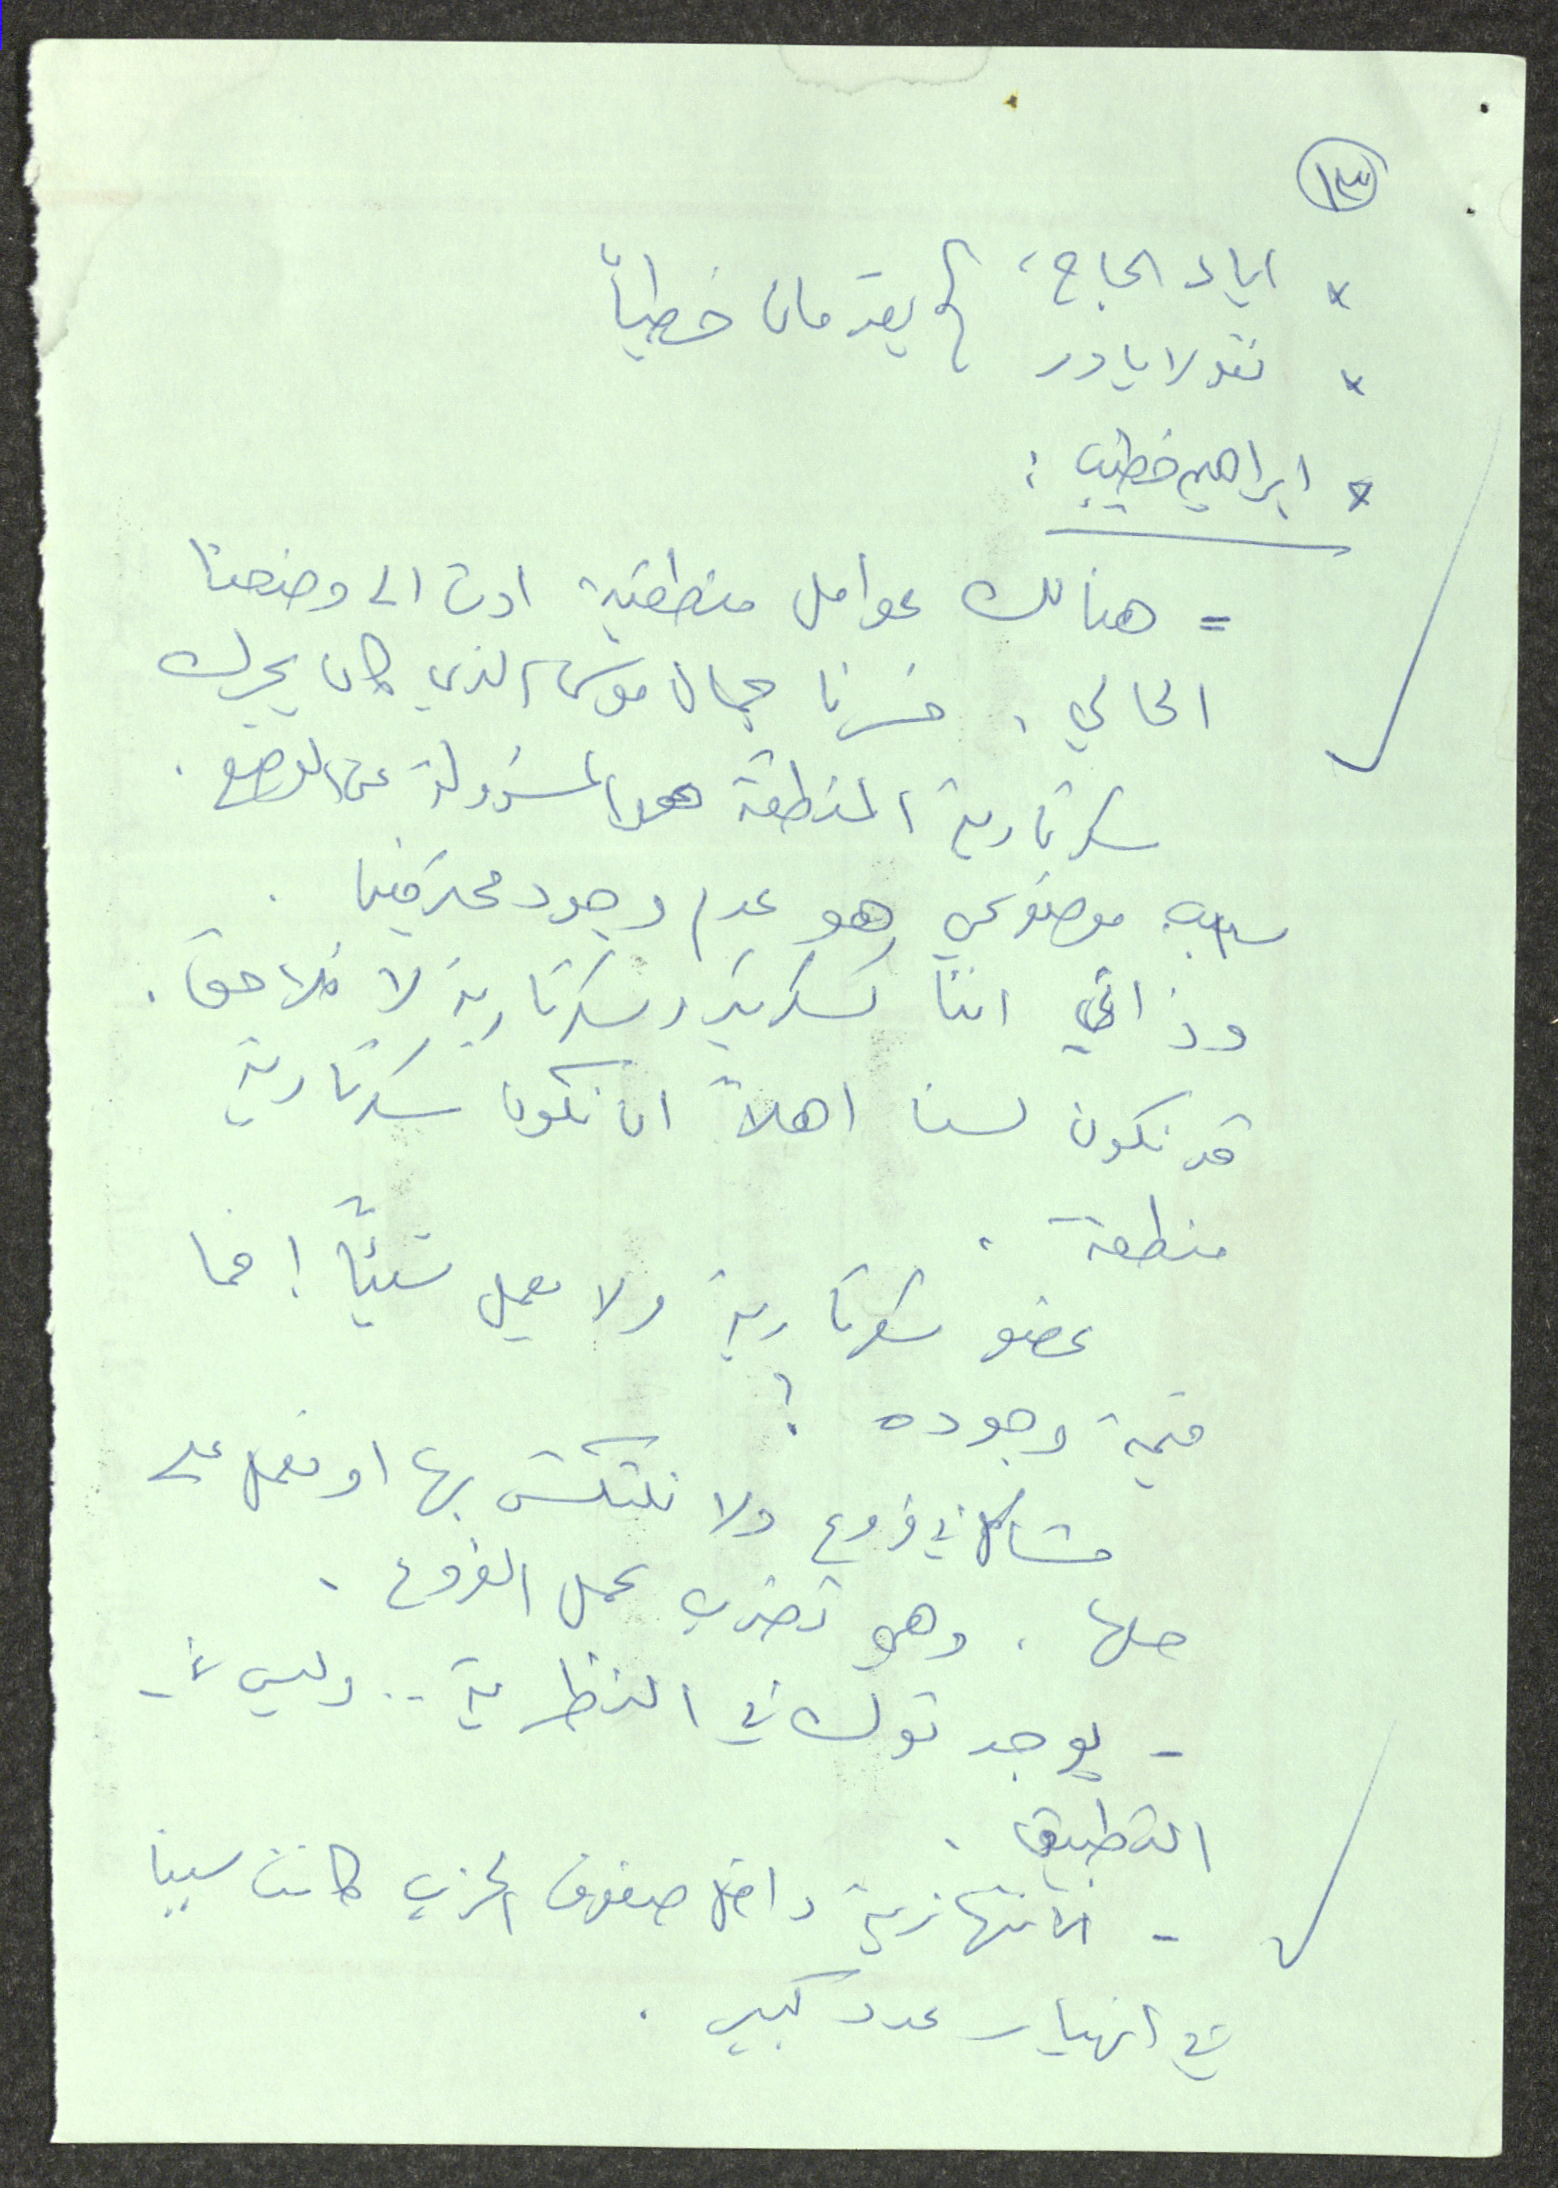 ١٣
* اياد الحاج، } يقدمان خطياً
* نقولا بادر
* ابراهيم خطيب :
= هنالك عوامل منطقية ادت الى وضعنا
الحالي . خسرنا جمال موسى الذي كان يحرك
سكرتارية المنطقة هو المسؤولة عن الوضع .
سبب موضوعي هو عدم وجود محترفينا .
وذاتي اننا كسكرتير وسكرتارية لا نلاحق .
قد نكون لسنا اهلاً ان نكون سكرتارية
منطقة .
عضو سكرتارية ولا يعمل شيئاً ! فما
قيمة وجوده ؟
مشاكل في فروع ولا نلتكش بها او نعمل على
حلها . وهي تضرب عمل الفروع .
- يوجد تولك في النظرية .. وليس في
التطبيق .
- الانتهازية داخل صفوف الحزب كانت سببا
في انهيار عدد كبير .